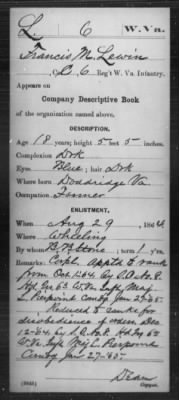 L. 6 W. Va.
Francis M. Lewin
Co. D, 6 Reg't W. Va. Infantry.
Appears on
Company Descriptive Book
of the organization named above.
DESCRIPTION.
Age 18 years; height 5 feet 5 inches.
Complexion Drk
Eyes Blue; hair Drk
Where born Doddridge Va
Occupation Farmer
ENLISTMENT.
When Aug 29, 1864.
Where Wheeling
By term 1 y'rs.
Remarks: Corpl. Appt'd to rank
from Oct 1 64. by
Hd Qrs 63 W. Va. Inft Maj
L. Pierpoint Comdg Jan 27-65.
Reduced to ranks for
disobedience of orders Dec
12-64. by Hd Qrs 63
W. Va. Inft Maj L. Pierpoint
Comdg Jan 27-65.
Dean
Copyist.